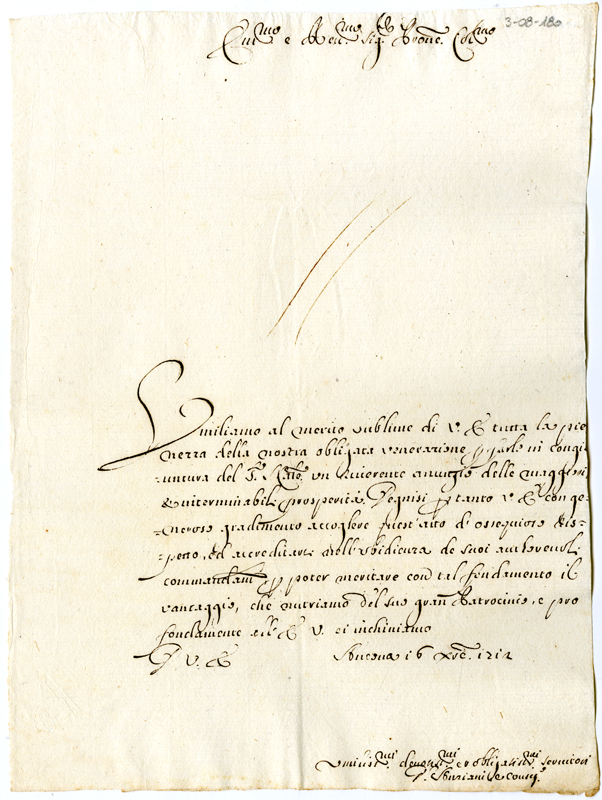 3-08-180
Em.mo e Rev.mo Sig.r Prone. Col.mo
Umiliamo al merito sublime di V. E. tutta la pie
nezza della nostra obligata venerazione p. farle in congi-
untura del S. Nale. un riverente annuzio delle maggiori
& interminabili prosperità. Degnisi p. tanto V. E. con ge-
neroso gradimento accogliere quest'atto di ossequioso Ris-
petto, ed accreditarci nell'ubidienza de suoi autorevoli
commandam.ti p. poter meritare con tal fondamento il
vantaggio, che nutriamo del suo gran Patrocinio, e pro
fondamente all' E. V. ci inchiniamo
D. V. E. Ancona 16 Xbre. 1712
Umiliss.mi devotis.mi et obligatis.mi servitori
Gl. Anziani e Consig.